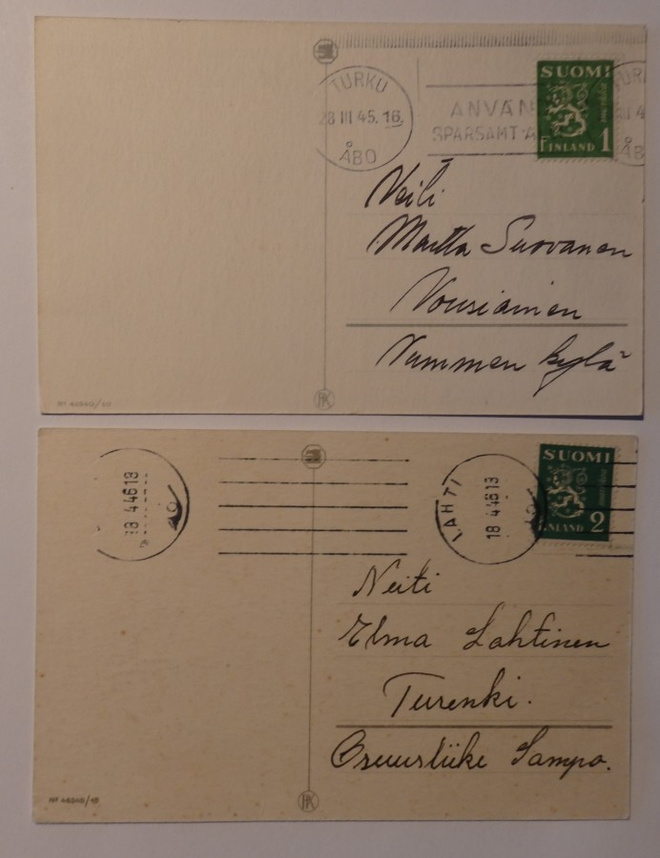 TURKU
28 III 45. 16.
ÅBO
ANVÄN
SPARSAMT
SUOMI
FINLAND 1
Neiti
Martta Suovanen
Vousiainen
Nummen kylä
Nº 46540/60
HK
18.4.46 13
LAHTI
18.4.46 13
SUOMI
FINLAND 2
Neiti
Elma Lahtinen
Turenki.
Osuusliike Sampo.
Nº 46540/10
HK